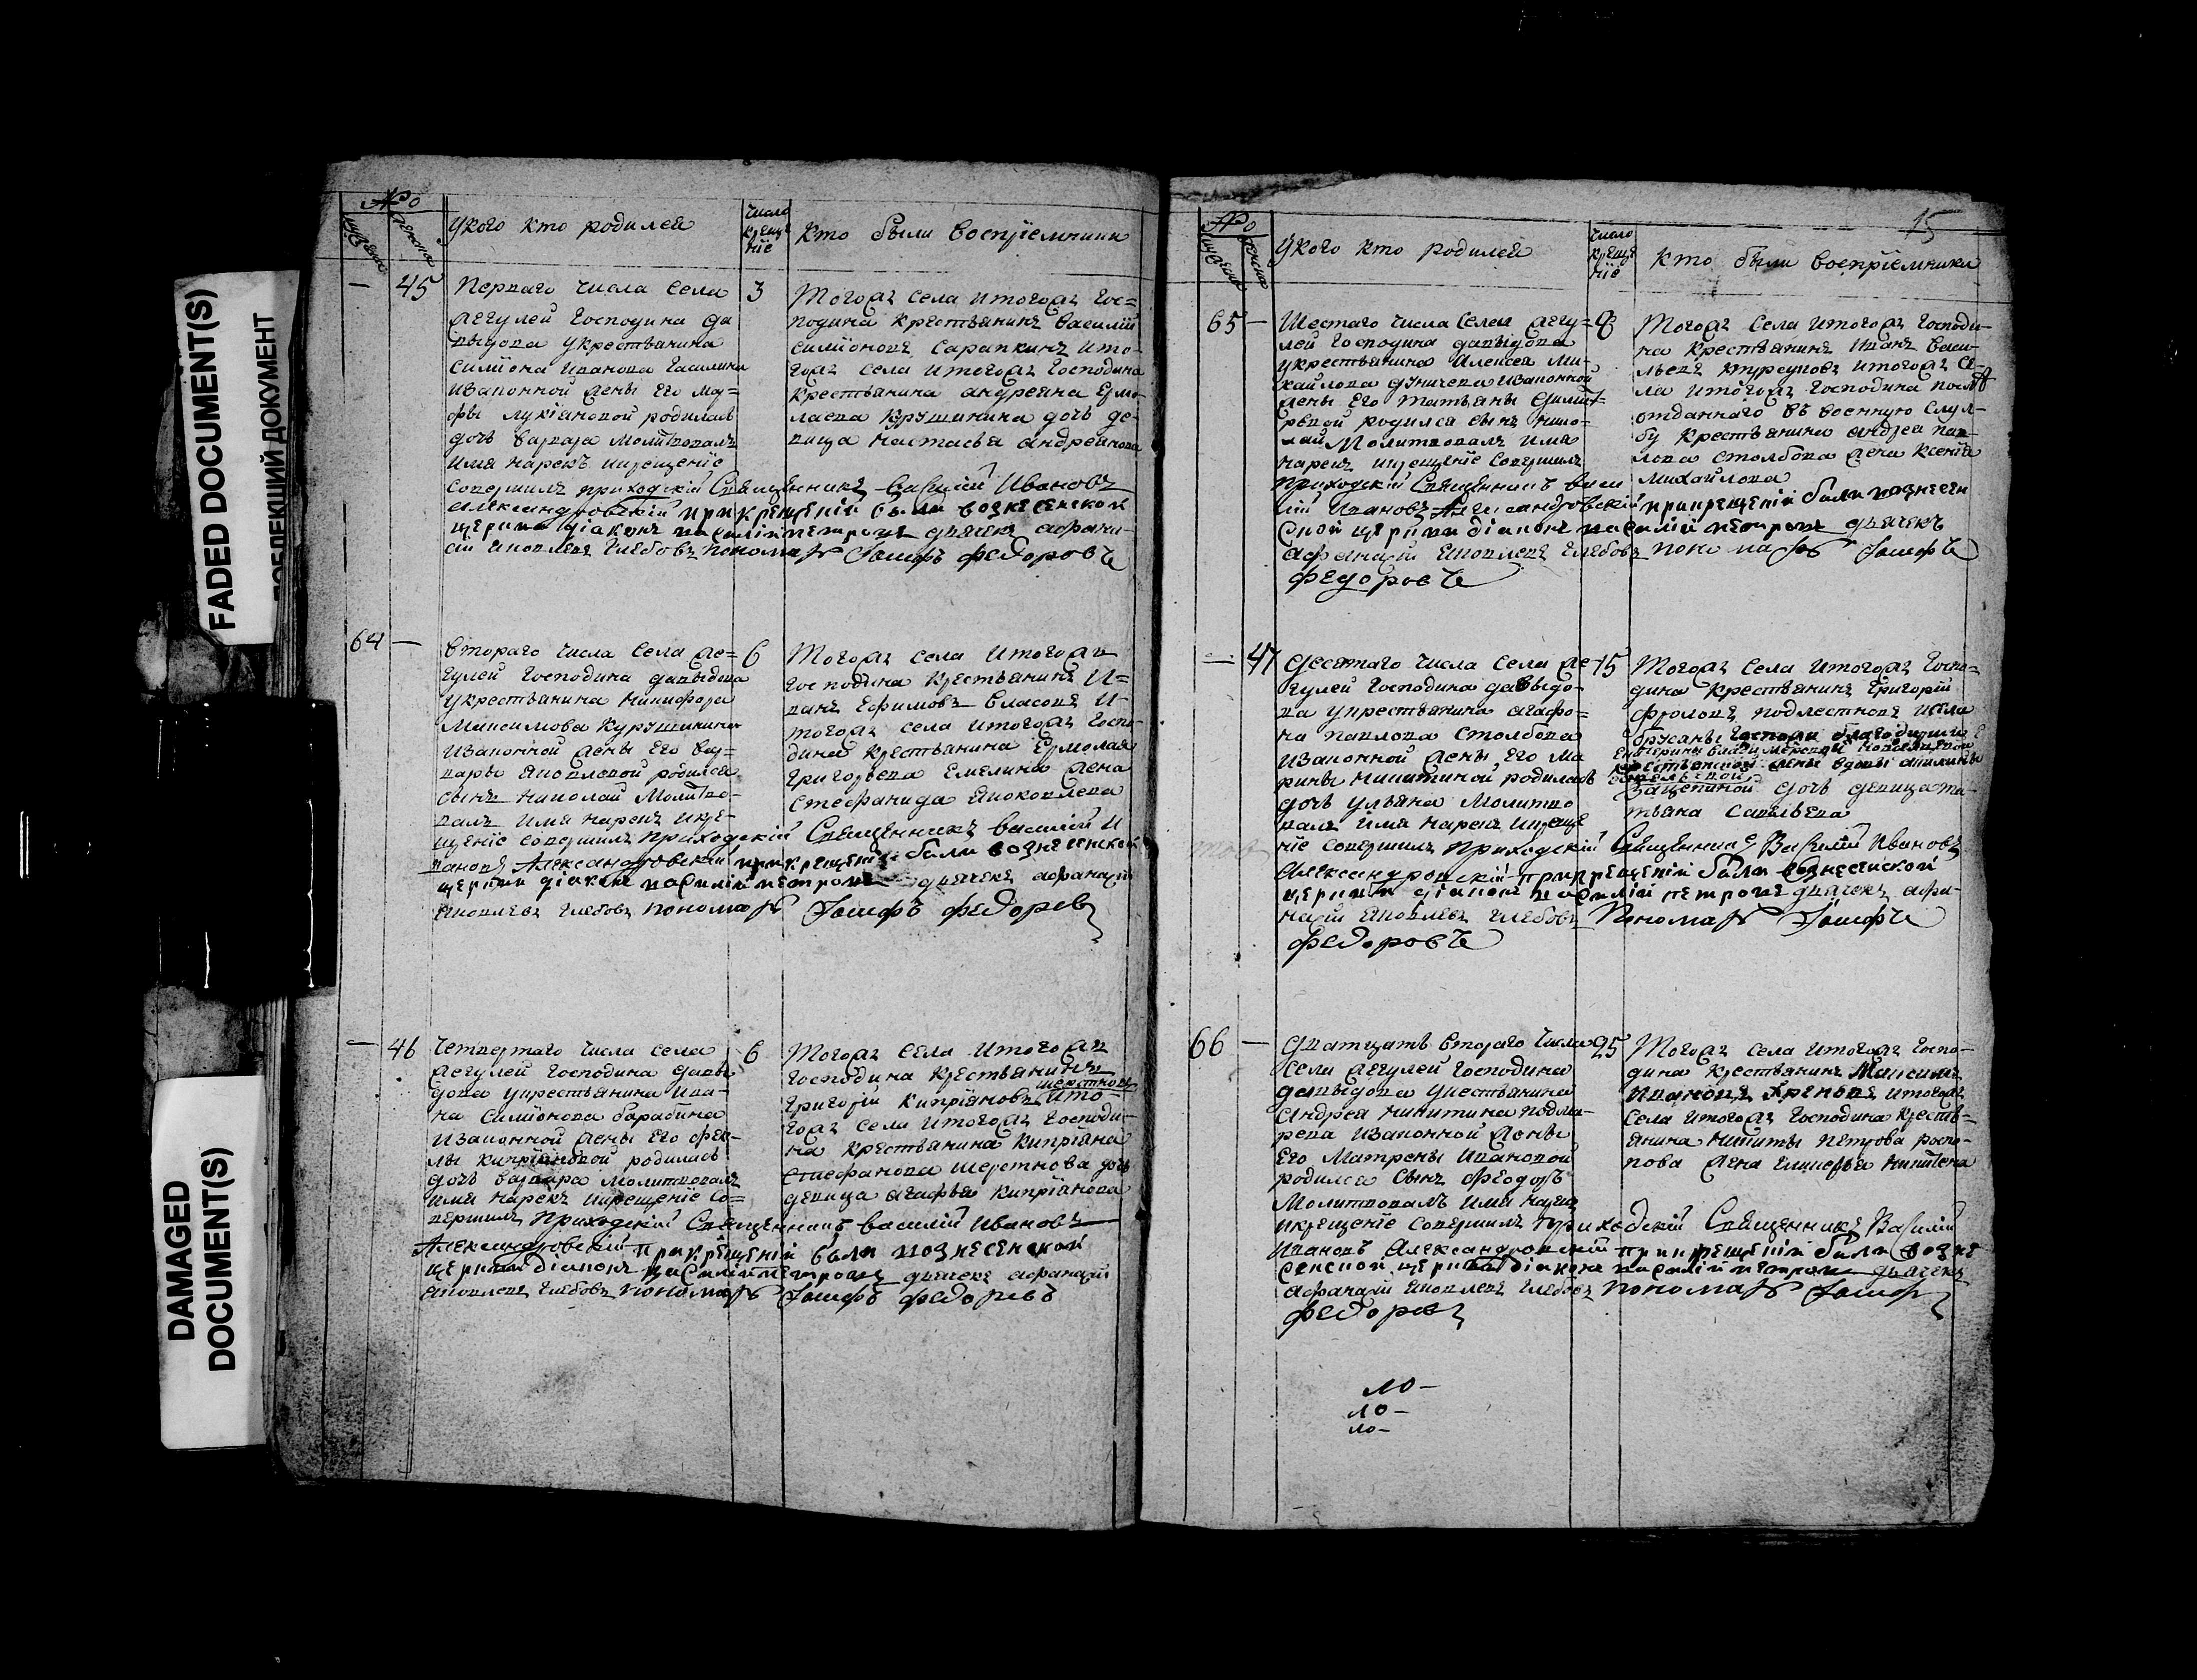 FADED DOCUMENT(S)
ДОКУМЕНТ
DAMAGED
DOCUMENT(S)
№
У кого кто родился
число
креще
ніе
Кто были воспріемники
— 45
Перваго числа села
Легулей Господина Да
выдова у крестьянина
Симіона Иванова
иззаконной жены его Мар=
фы Лукіановой родилась
дочь Варвара Молитвовалъ
имя нарекъ икрещеніе
совершилъ приходскій Священникъ Василій Ивановъ
Александровскій при крещеніи были вознесенской
церкви діаконъ Василій Петровъ дьячекъ Афана-
сій Яковлевъ Глебовъ пономарь Іосифъ Федоровъ
3
Тогожъ села итогожъ Гос=
подина крестьянинъ Василій
Симіоновъ Сарапкинъ ито-
гожъ села итогожъ Господина
крестьянина Андреяна Ермо-
лаева Крушинина дочь де-
вица Настасья Андреянова
64 —
Втораго числа села Ле=
гулей Господина Давыдова
у крестьянина Никифора
Максимова Курушинина
иззаконной жены его Вар=
вары Яковлевой родился
сынъ Николай Молитво-
валъ имя нарекъ икре-
щеніе совершилъ приходскій Священникъ Василій И
вановъ Александровскій при крещеніи были вознесенской
церкви діаконъ Василій Петровъ дьячекъ Афанасій
Яковлевъ Глебовъ пономарь Іосифъ Федоровъ
6
Тогожъ села итогожъ
Господина крестьянинъ И=
ванъ Ефимовъ Власовъ и-
тогожъ села итогожъ Госпо-
дина крестьянина Ермолая
Григорьева Емелина жена
Стефанида Яковлева
— 46
Четвертаго числа села
Легулей Господина Давы
дова укрестьянина Ива-
на Симіонова Барабина
иззаконной жены его Фек-
лы Кипріановой родилась
дочь Варвара Молитвовалъ
имя нарекъ икрещеніе со=
вершилъ приходскій Священникъ Василій Ивановъ
Александровскій при крещеніи были вознесенской
церкви діаконъ Василій Петровъ дьячекъ Афанасій
Яковлевъ Глебовъ пономарь Іосифъ Федоровъ
6
Тогожъ села итогожъ
Господина крестьянинъ
шерстновъ
Григорій Кипріановъ ито-
гожъ села итогожъ Господи-
на крестьянина Кипріана
Стефанова Шерстнова дочь
девица Агафья Кипріанова
15
№
У кого кто родился
число
креще
ніе
Кто были воспріемники
65 —
Шестаго числа села Легу=
лей Господина Давыдова
укрестьянина Алексея Ми-
хайлова иззаконной
жены его Татьяны
родился сынъ Нико-
лай Молитвовалъ имя
нарекъ икрещеніе совершилъ
приходскій Священникъ Васи
лій Ивановъ Александровскій при крещеніи были вознесен
ской церкви діаконъ Василій Петровъ дьячекъ
Афанасій Яковлевъ Глебовъ пономарь Іосифъ
Федоровъ
8
Тогожъ села итогожъ Господи-
на крестьянинъ Иванъ Васи-
льевъ итогожъ се-
ла итогожъ Господина
отданнаго въ военную служ-
бу крестьянина Андрея Пав-
лова Столбова жена Ксенія
Михайлова
— 47
Десятаго числа села Ле-
гулей Господина Давыдо-
ва укрестьянина Агафо-
на Павлова Столбова
иззаконной жены его Ма
рины Никитиной родилась
дочь Ульяна Молитво
валъ имя нарекъ икреще
ніе совершилъ приходскій Священникъ Василій Ивановъ
Александровскій при крещеніи были вознесенской
церкви діаконъ Василій Петровъ дьячекъ Афа-
насій Яковлевъ Глебовъ пономарь Іосифъ
Федоровъ
15
Тогожъ села итогожъ Госпо-
дина крестьянинъ Григорій
Фроловъ Подлестновъ исела
крестьянской жены вдовы Акилины
дочь девица Та-
тьяна Савельева
66 —
Дватцать втораго числа
села Легулей Господина
Давыдова у крестьянина
Андрея Никитина
иззаконной жены
его Матрены Ивановой
родился сынъ Феодоръ
Молитвовалъ имя нарекъ
икрещеніе совершилъ приходскій Священникъ Василій
Ивановъ Александровскій при крещеніи были возне
сенской церкви діаконъ Василій Петровъ дьячекъ
Афанасій Яковлевъ Глебовъ пономарь Іосифъ
Федоровъ
25
Тогожъ села итогожъ Госпо-
дина крестьянинъ Максимъ
Ивановъ Хреновъ итогожъ
села итогожъ Господина кресть-
янина Никиты Петрова
жена Гликерья Никитена
ло-
ло-
ло-